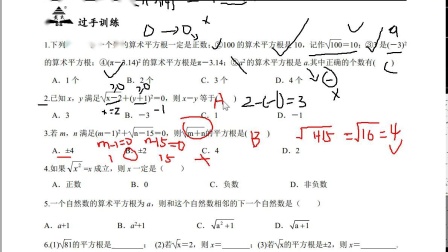 过手训练
0→0 x
1.下列 个的算术平方根一定是正数;②100的算术平方根是10,记作√100=10;③3是(-3)²
的算术平方根;④(π-3.14)²的算术平方根是π-3.14;⑤a²的算术平方根是a.其中正确的个数有( )
A.1个 B.2个 C.3个 D.4个
2.已知x,y满足√x-2+(y+1)²=0,则x-y等于(A)
x=2 -1 2-(-1)=3
A.3 B.-3 C.1 D.-1
3.若m,n满足(m-1)²+√n-15=0,则√m+n的平方根是( B
A.±4 B.±2 C.4 D.2
m-1=0 m-15=0
1 15
√415=√16=4
4.如果√x²=x成立,则x一定是( )
A.正数 B.0 C.负数 D.非负数
5.一个自然数的算术平方根为a,则和这个自然数相邻的下一个自然数是( )
A.a+1 B.a²+1 C.√a²+1 D.√a+1
6.(1)√81的平方根是______; (2)若√x=2,则x=______; (3)若x的平方根是±2,则x=